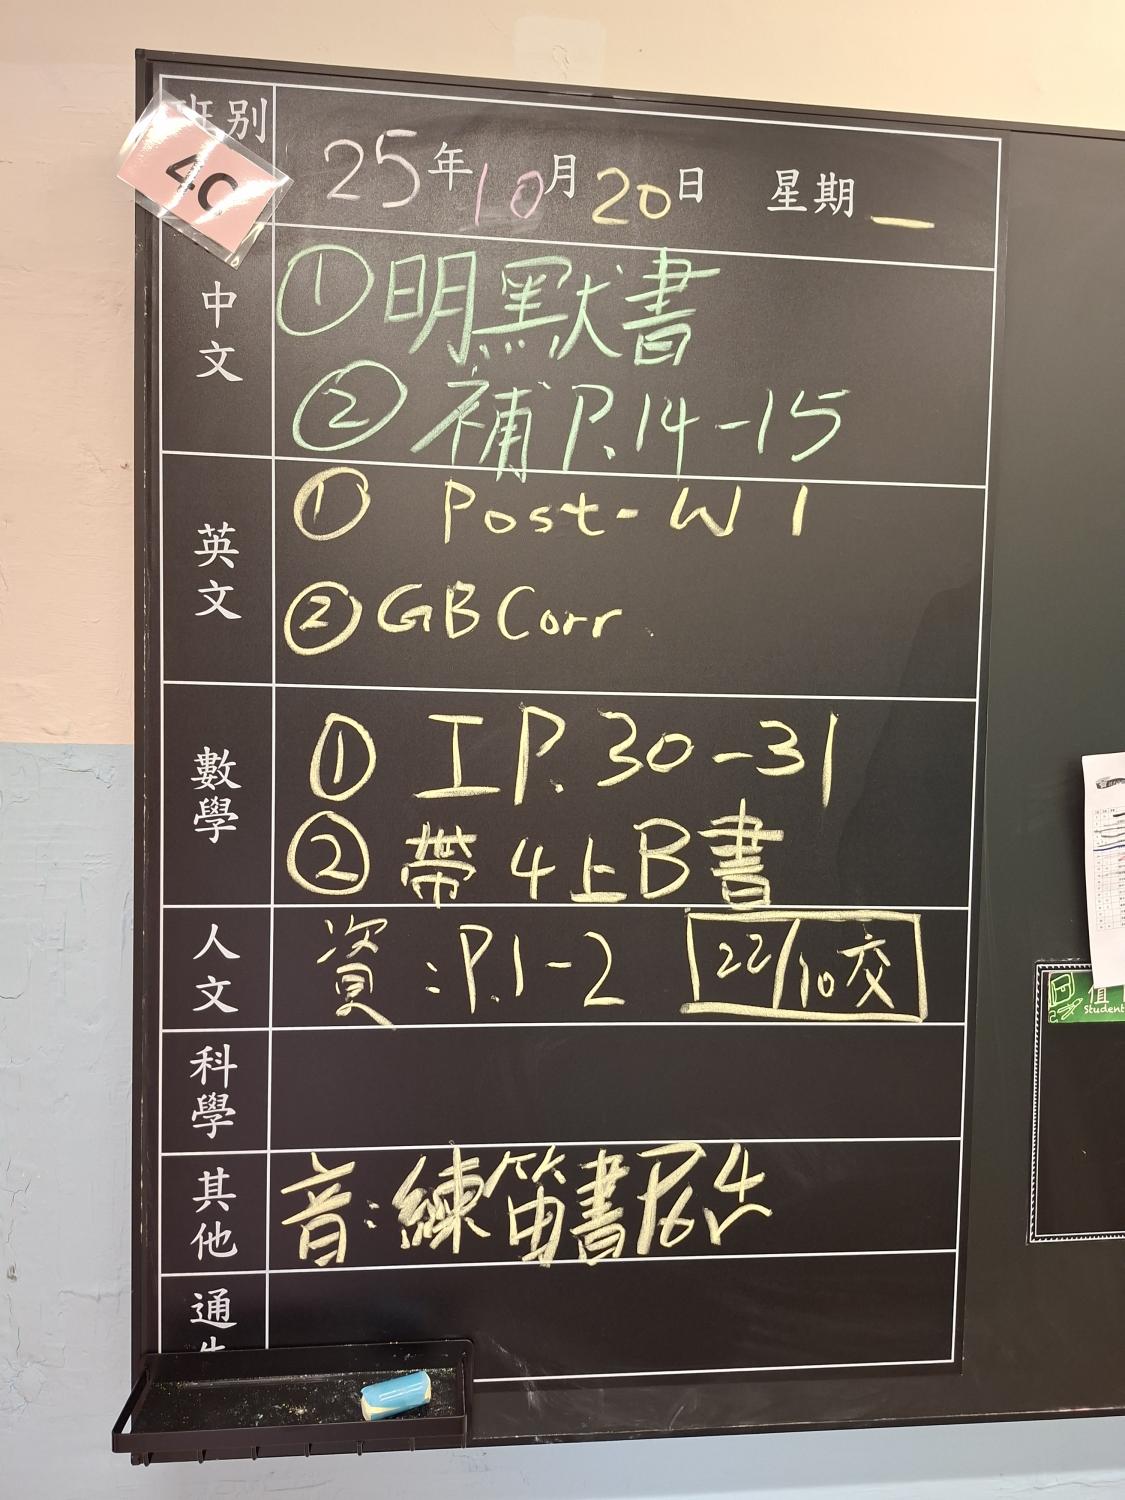 班別
4C
25年10月20日 星期一
中文
① 明默書
② 補 P.14-15
英文
① Post-W 1
② GB Corr.
數學
① 工 P. 30-31
② 帶 4上B書
人文
資:P.1-2 22/10交
科學
其他
音:練笛書P.6
通
Student